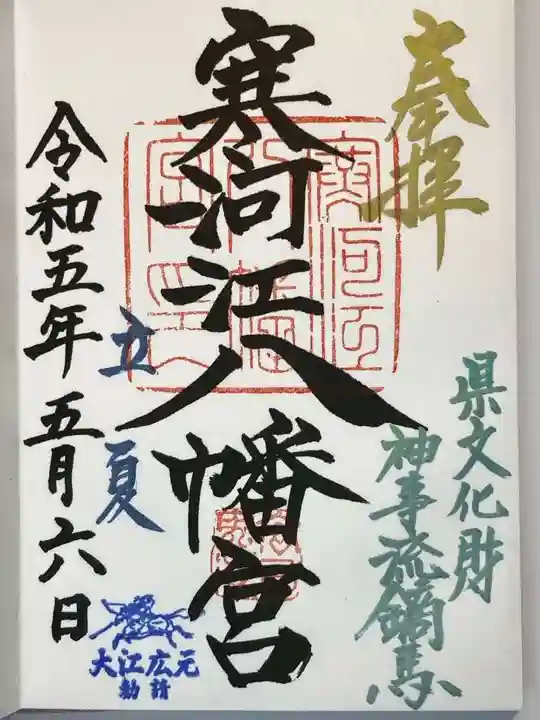 奉拝
県文化財
神事流鏑馬
寒河江八幡宮
立夏
令和五年五月六日
大江広元
勧請